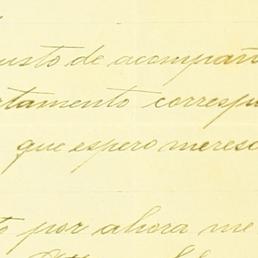 usto de acompañ
rtamento corresp
que espero meresc
to por ahora me